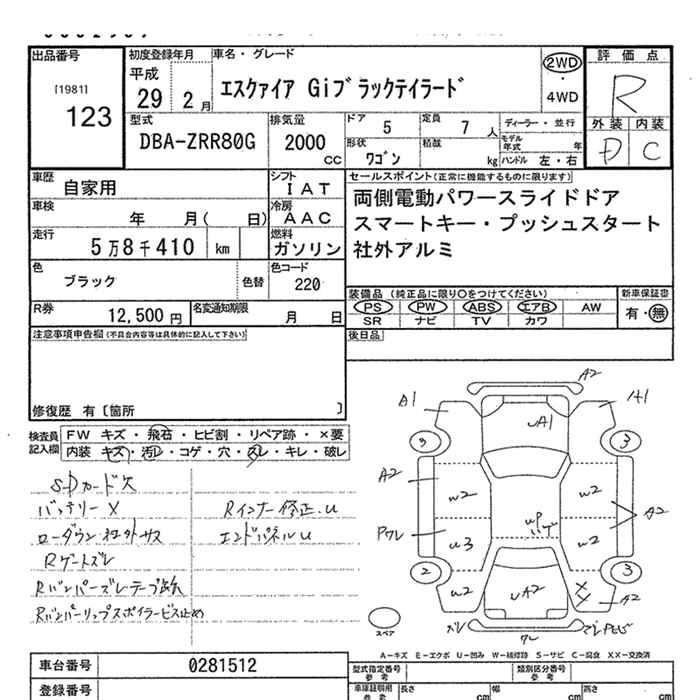 出品番号 初度登録年月 車名・グレード 評価点
[1981] 123
平成 29年 2月
エスクァイア Giブラックテイラード
2WD ・ 4WD
R
外装 内装
D C
型式 排気量 ドア 5 定員 7人 ディーラー・並行
DBA-ZRR80G 2000cc 形状 ワゴン 積載 kg モデル年式 年
ハンドル 左・右
車歴 自家用 シフト IAT セールスポイント(正常に機能するものに限ります)
両側電動パワースライドドア
車検 年 月( 日) 冷房 AAC
スマートキー・プッシュスタート
走行 5万8千410 km 燃料 ガソリン
社外アルミ
色 ブラック 色替 色コード 220
装備品 (純正品に限り○をつけてください) 新車保証書
PS PW ABS エアB AW 有・無
SR ナビ TV カワ
R券 12,500円 名変通知期限 月 日
注意事項申告欄(不具合内容等は具体的に記入して下さい) 後日品
修復歴 有〔箇所 〕
検査員記入欄 FW キズ・飛石・ヒビ割・リペア跡・×要
内装 キズ・汚レ・コゲ・穴・スレ・キレ・破レ
SDカード欠
バッテリーX Rインナー修正.U
ローダウン社外サス エンドパネルU
Rゲートズレ
Rバンパーズレテープ跡
Rバンパーリップスポイラービス止め
A2
A1 UA1 A1
3 3
A2 W2 W2
UP
A2
Pワレ U3 W2
2 3
U2 UA2 XX A2
スペア ズレ ワレ
A-キズ E-エクボ U-凹み W-補修跡 S-サビ C-腐食 XX-交換済
車台番号 0281512 型式指定番号 参考 類別区分番号 参考
登録番号 車庫証明用 参考 長さ cm 幅 cm 高さ cm